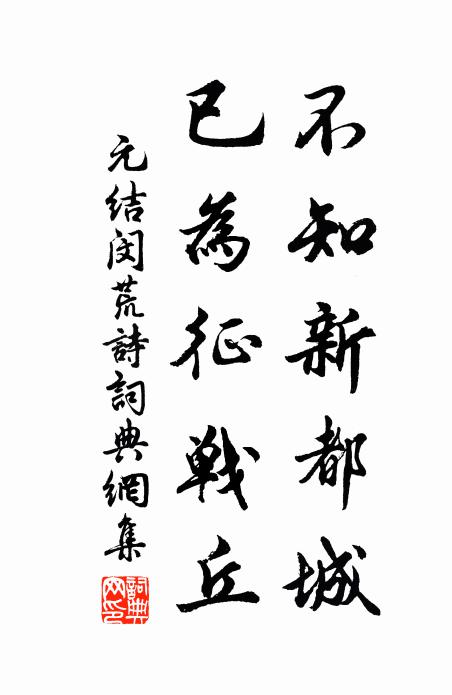 不知新都城
已為征戰丘
元结闵荒詩詞典網集
詞典網印